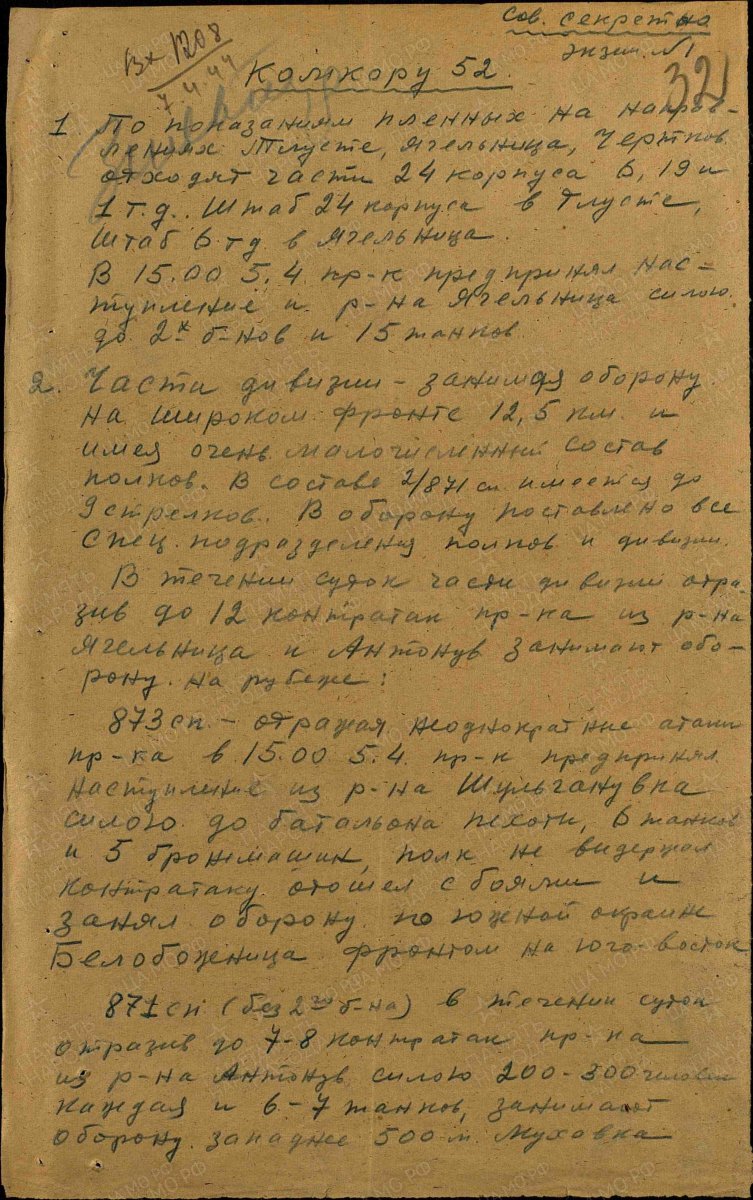 Сов. секретно
экзм. №1
Вх 1208
7.4.44
321
Комкору 52.
1. По показаниям пленных на направ-
лениях Тлусте, Ягельница, Чертков
отходят части 24 корпуса 6, 19 и
1 т.д. Штаб 24 корпуса в Тлусте,
штаб 6 тд в Ягельница.
В 15.00 5.4 пр-к предпринял нас-
тупление из р-на Ягельница силою
до 2х б-нов и 15 танков
2. Части дивизии - занимая оборону
на широком фронте 12,5 км. и
имея очень малочисленный состав
полков. В составе 2/871 сп имеется до
9 стрелков. В оборону поставлено все
спец. подразделения полков и дивизии.
В течении суток части дивизии отра-
зив до 12 контратак пр-ка из р-на
Ягельница и Антонув занимают обо-
рону на рубеже:
873 сп. - отражая неоднократные атаки
пр-ка в 15.00 5.4. пр-к предпринял
наступление из р-на Шульгановка
силою до батальона пехоты, 6 танков
и 5 бронемашин, полк не видержал
контратаку отошел с боями и
занял оборону по южной окраине
Белобожница фронтом на юго-восток
871 сп (без 2го б-на) в течении суток
отразив до 7-8 контратак пр-ка
из р-на Антонув силою 200-300 человек
каждая и 6-7 танков, занимают
оборону западнее 500 м. Муховка